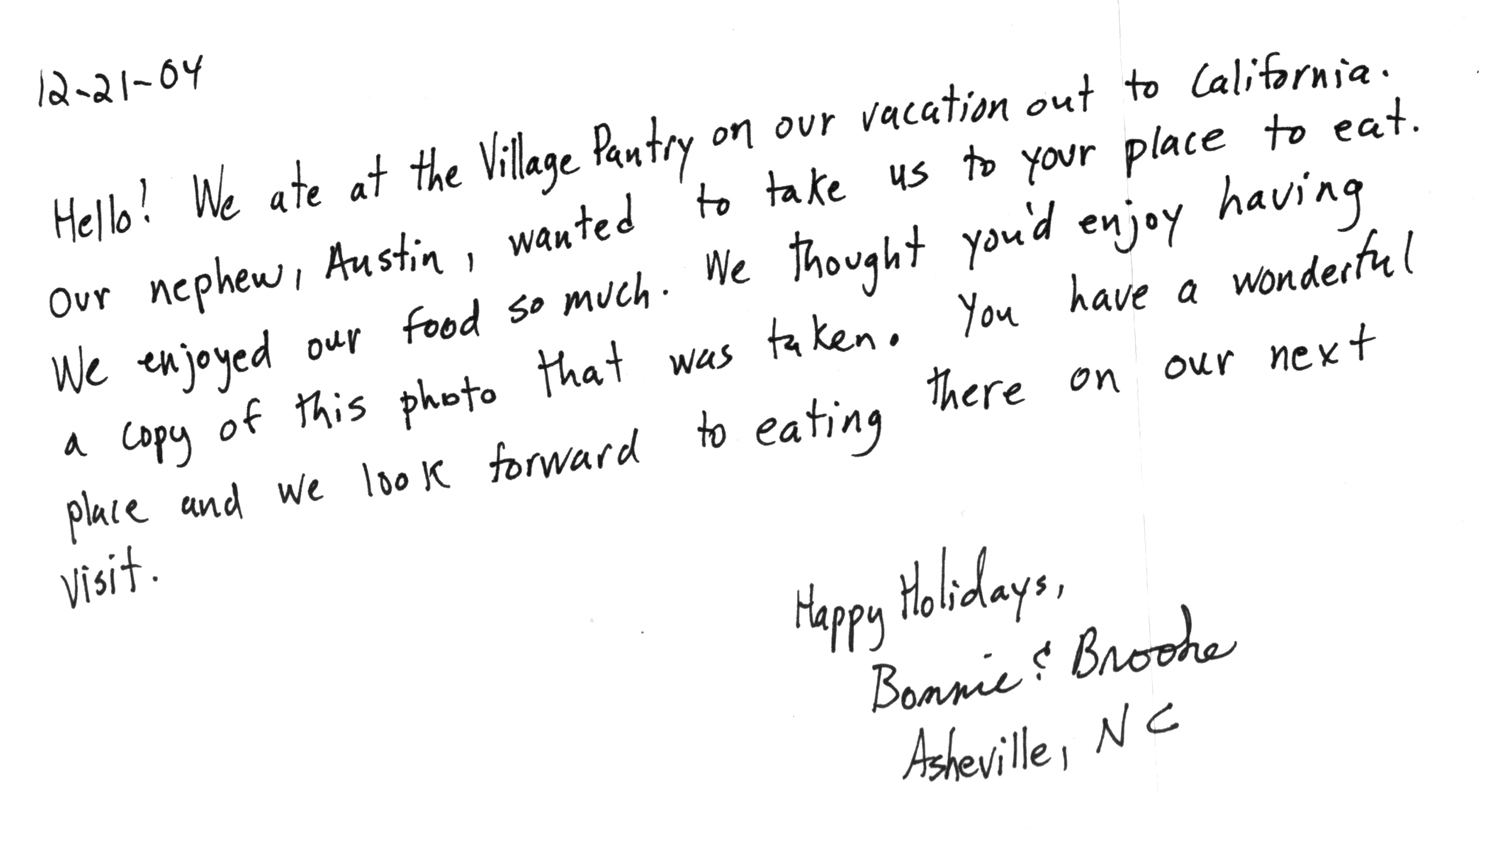 12-21-04
Hello! We ate at the Village Pantry on our vacation out to California.
Our nephew, Austin, wanted to take us to your place to eat.
We enjoyed our food so much. We thought you'd enjoy having
a copy of this photo that was taken. You have a wonderful
place and we look forward to eating there on our next
visit.
Happy Holidays,
Bonnie & Brooke
Asheville, NC